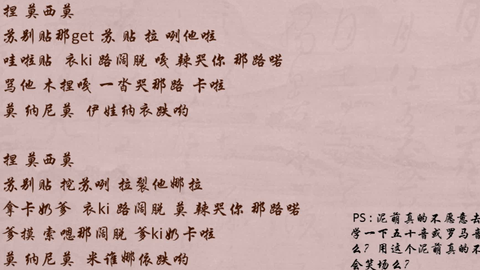 捏 莫西莫
苏别贴那get 苏 贴 拉 咧他啦
哇啦贴 衣ki 路阔脱 嘎 辣哭你 那路喏
骂他 木捏嘎 一沓哭那路 卡啦
莫 纳尼莫 伊娃纳衣跌哟
捏 莫西莫
苏别贴 挖苏咧 拉裂他娜拉
拿卡奶爹 衣ki 路阔脱 莫 辣哭你 那路喏
爹摸 索嗯那阔脱 爹ki奶卡啦
莫 纳尼莫 米诶娜依跌哟
PS:泥萌真的不愿意去
学一下五十音或罗马音
么？用这个泥萌真的不
会笑场么？